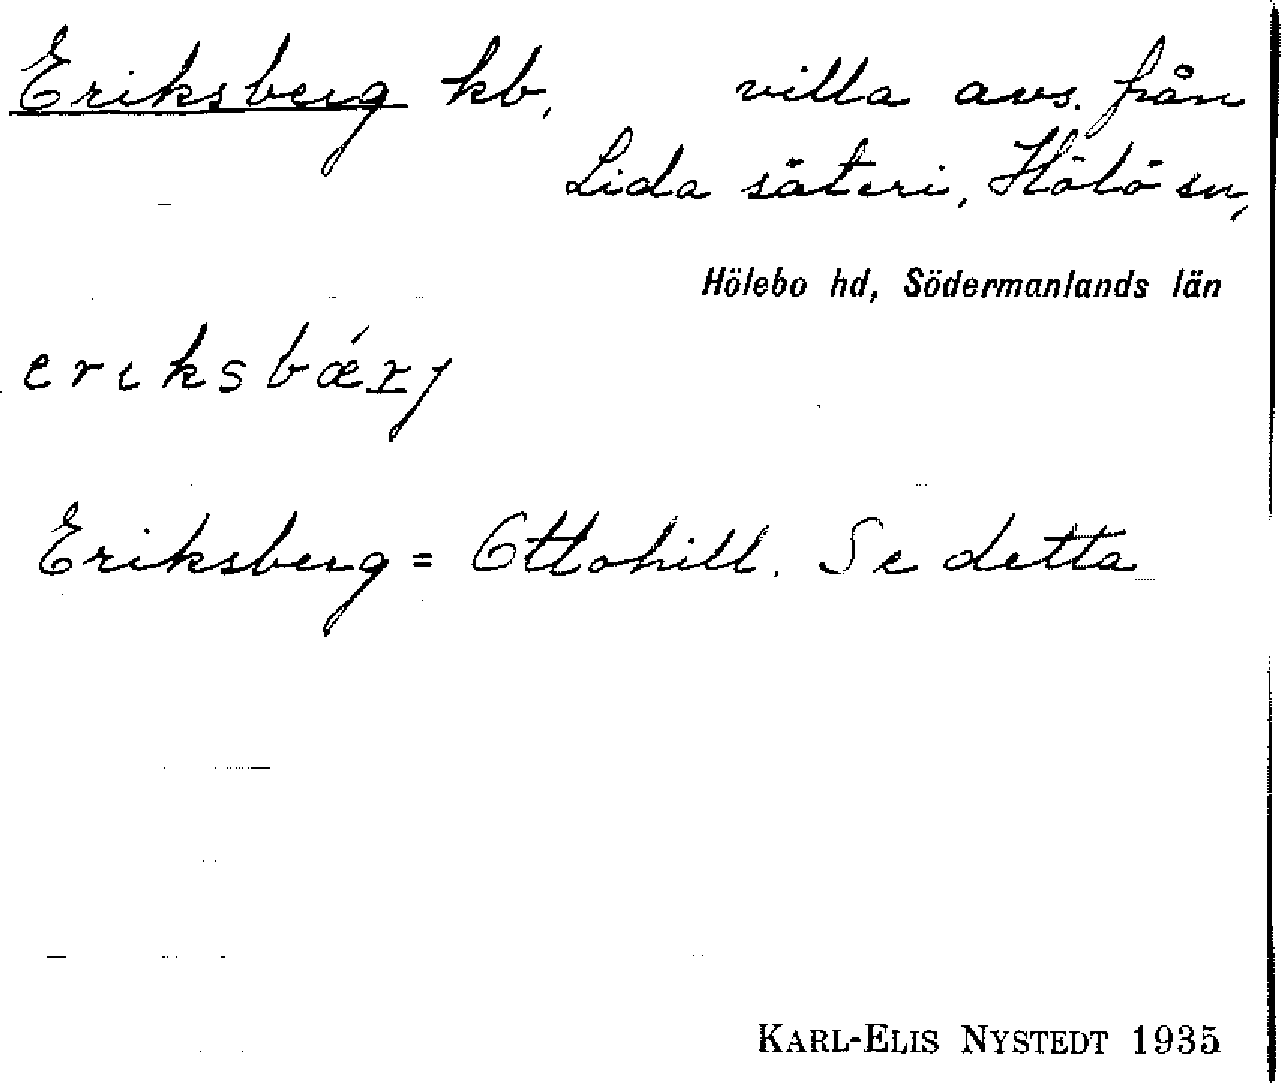 Eriksberg kb, villa avs. från
Lida säteri, Hölö sn,
Hölebo hd, Södermanlands län
eriksbǽrj
Eriksberg = Ottohill. Se detta
KARL-ELIS NYSTEDT 1935